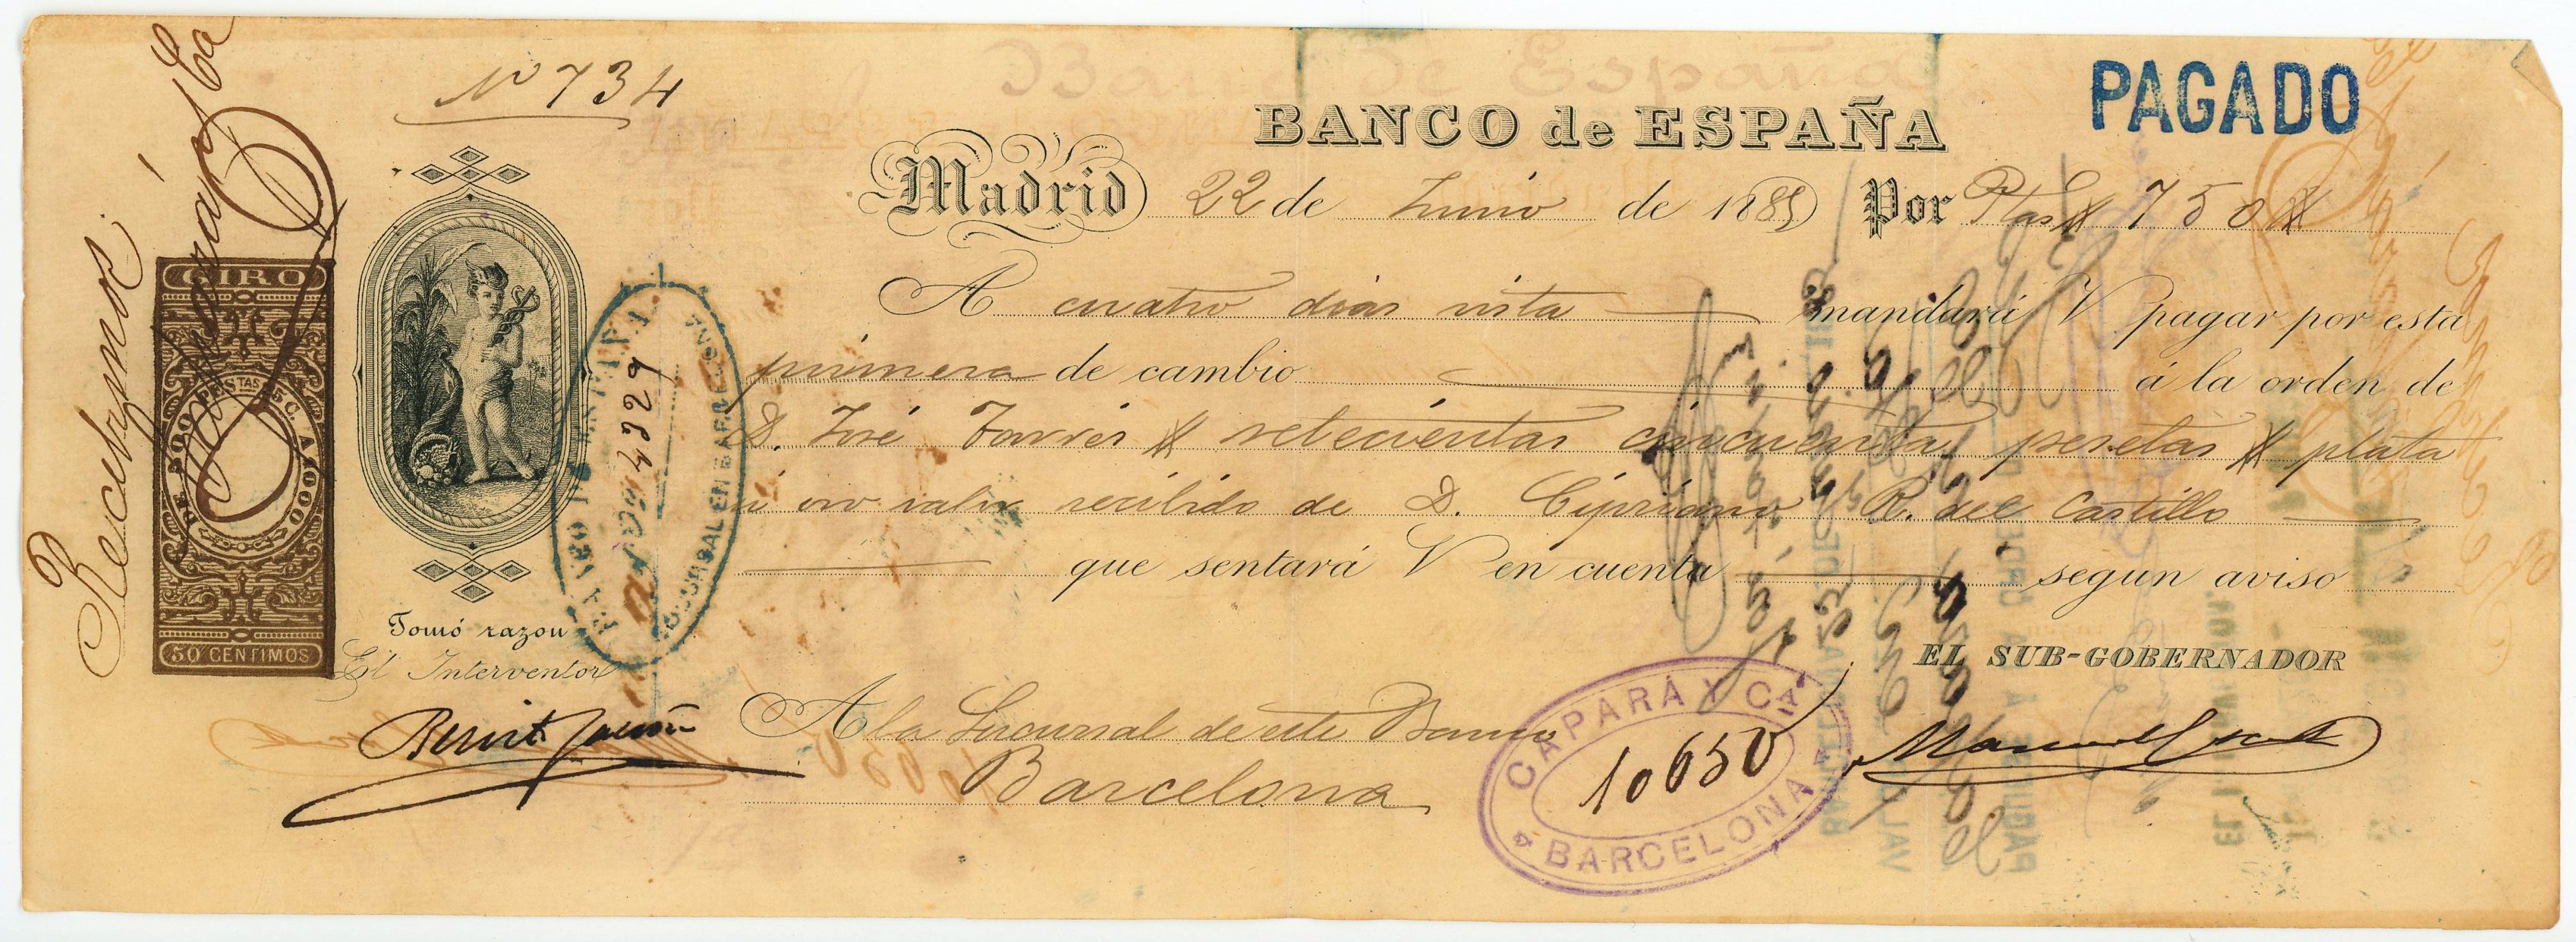 Nº 734
BANCO de ESPAÑA
PAGADO
Madrid 22 de Junio de 1885 Por Ptas # 750 #
A cuatro dias vista mandará V pagar por esta
primera de cambio á la orden de
D. José Torres # setecientas cincuenta pesetas # plata
ú oro valor recibido de D. Cipriano R. del Castillo
que sentará V en cuenta segun aviso
EL SUB-GOBERNADOR
Tomó razon
El Interventor
A la Sucursal de este Banco
Barcelona
Recibimos
Caparáy Ca
GIRO
DE 500 PESTAS 5 C. A 1000
50 CENTIMOS
SUCURSAL EN BARCELONA
CAPARÁ Y CA
10650
BARCELONA